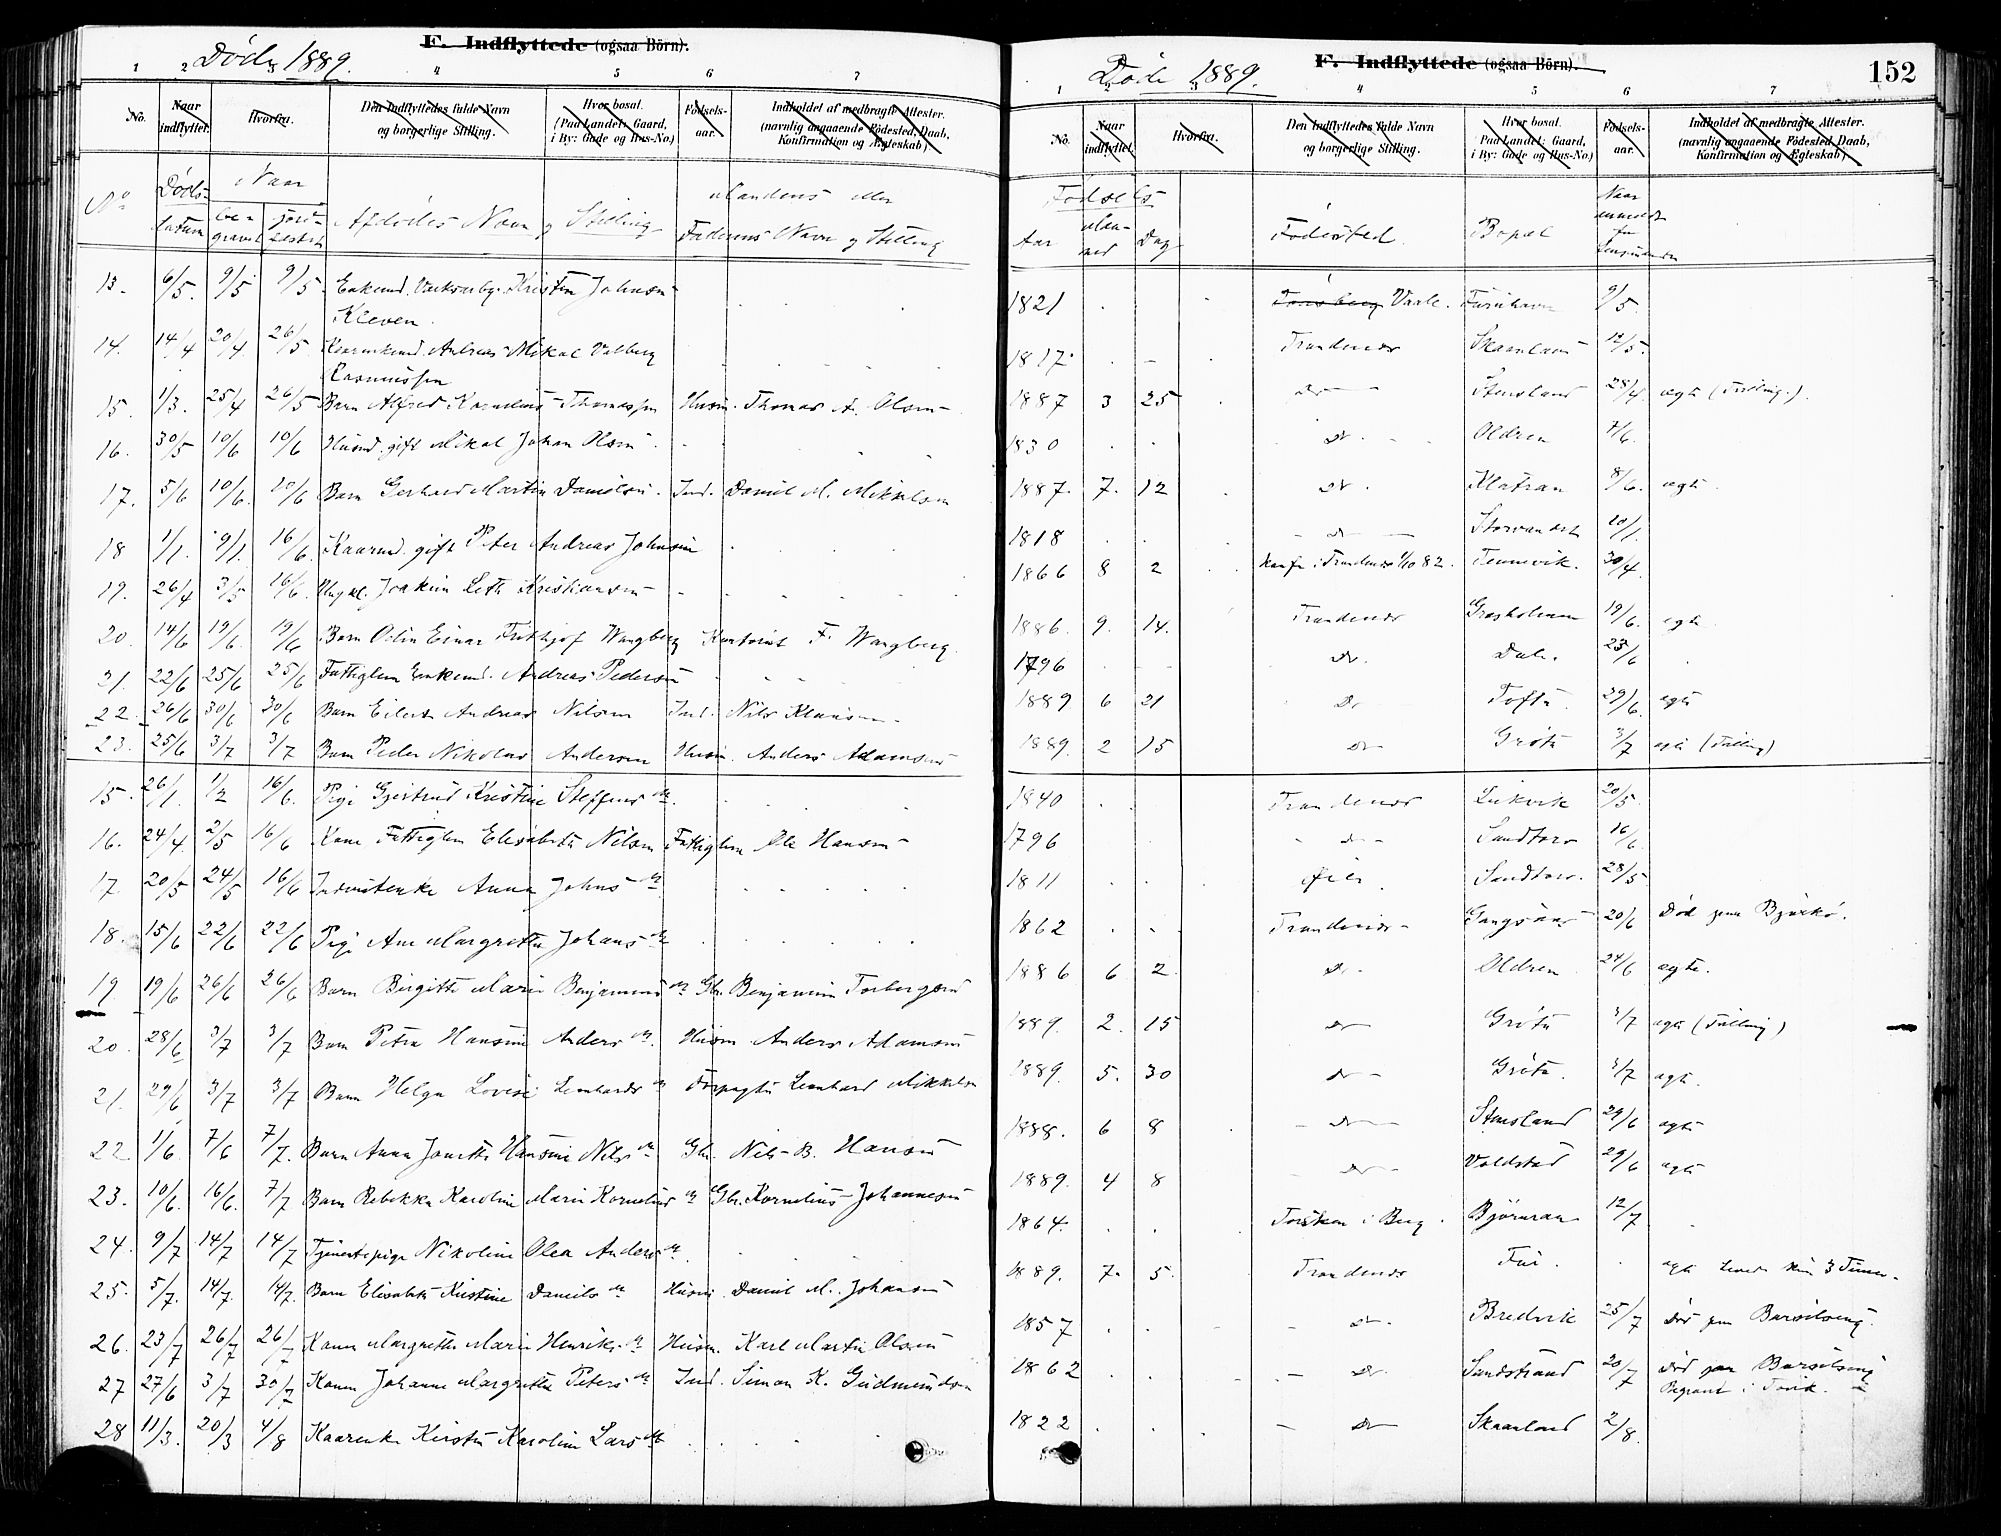 F. Indflyttede (ogsaa Börn).
Døde 1889.
1 2 3 4 5 6 7
No. Naar indflyttet. Hvorfra. Den Indflyttedes fulde Navn og borgerlige Stilling. Hvor bosat. (Paa Landet: Gaard, i By: Gade og Hus-No.) Födsels-aar. Indholdet af medbragte Attester. (navnlig angaaende Födested, Daab, Konfirmation og Ægteskab)
No Døds-datum Naar be-gravet jord-fæstet Afdødes Navn og Stilling Mandens eller Faderens Navn og Stilling
13. 6/5. 9/5 9/5 Enkemd. Kristen Johnsen
Kleven.
14. 14/4 20/4 26/5 Kaarenkemd. Andreas Mikal Valberg
Rasmussen
15. 1/3. 25/4 26/5 Barn Alfred Kornelius Thomassen Husm. Thomas A. Olsen
16. 30/5 10/6 10/6 Husmd. gift Mikal Johan Olsen
17. 5/6 10/6. 10/6 Barn Gerhard Martin Danielsen. Ind. Daniel M. Mikkelsen
18 1/1. 9/1. 16/6. Kaarmd. gift Peter Andreas Johnsen
19. 26/4 3/5 16/6. Ungkl. Joakim Leth Kristiansen
20. 14/6 19/6. 19/6 Barn Odin Einar Frithjof Wangberg Kontorist F. Wangberg.
21. 22/6 25/6 25/6 Fattiglem Enkemd. Andreas Pedersen
22. 26/6 30/6 30/6 Barn Eilert Andreas Nilsen Ind. Nils Klausen
23. 25/6 3/7 3/7 Barn Peder Nikolai Andersen Husm. Anders Adamsen
15. 26/1. 1/2 16/6. Pige Gjertrud Kristine Steffensdr.
16. 24/4 2/5 16/6 Kone Fattiglem Elisabeth Nilsen Fattiglem Ole Hansen
17. 20/5 24/5 16/6 Inderstenke Anna Johnsdr
18. 15/6 22/6 22/6 Pige Ane Margrethe Johansdr
19 19/6 26/6 26/6 Barn Birgitte Marie Benjaminsdr Gbr. Benjamin Torbergsen
20. 28/6 3/7 3/7 Barn Petra Hansine Andersdr. Husm Anders Adamsen
21. 29/6 3/7 3/7 Barn Helga Lovise Lenhardsdr Forpagter Lenhard Mikkelsen
22 1/6. 7/6 7/7. Barn Anna Jonette Hansine Nilsdr Gbr. Nils B. Hansen
23. 10/6. 16/6. 7/7 Barn Rebekka Karoline Marie Korneliusdr Gbr. Kornelius Johannesen
24. 9/7 14/7 14/7 Tjenestepige Nikoline Olea Andersdr.
25. 5/7. 14/7. 14/7. Barn Elisabeth Kristine Danielsdr Husm. Daniel M. Johansen
26. 23/7 26/7 26/7 Kone Margrethe Marie Henriksdr Husm. Karl Martin Olsen
27 27/6 3/7 30/7 Konen Johanne Margrethe Petersdr Ind. Simon K. Gudmundsen
28 11/3. 20/3 4/8 Kaarenke Kirsten Karoline Larsdr.
F. Indflyttede (ogsaa Börn).
152
Døde 1889.
1 2 3 4 5 6 7
No. Naar indflyttet. Hvorfra. Den Indflyttedes fulde Navn og borgerlige Stilling. Hvor bosat. Paa Landet: Gaard, i By: Gade og Hus-No.) Födsels-aar. Indholdet af medbragte Attester. (navnlig angaaende Födested, Daab, Konfirmation og Ægteskab)
Fødsels Aar Maaned Dag Fødested. Bopæl Naar anmeldt for Lensmanden
1821 Tønsberg Vaale. 9/5
1817 Trondenes Skaanland 12/5.
1887 3 25 do Stensland 28/4 ægte (Tvilling.).
1830 do Oldren 7/6.
1887. 7. 12 do. Klatran 8/6. ægte
1818 do Storvandet 20/1.
1866 8 2 Konfr i Trondenes 1/10 82. Tennevik. 30/4.
1886. 9. 14. Trondenes Grasholmen 19/6. ægte
1796 do. Dale. 25/6
1889 6 21 do Tofte 29/6. ægte
1889. 2 15 do Grøtø 3/7 ægte (Tvilling)
1840 Trondenes Lekvik 20/5.
1796 do Sandtorv 16/6.
1811 Sandtorv. 28/5
1862 Trondenes Gangsaas 20/6 Død paa Bjarkø.
1886 6 2 do Oldren 24/6 ægte.
1889. 2. 15 do Grøtø 3/7 ægte (Tvilling)
1889. 5. 30 do Grøtø. 3/7 ægte.
1888. 6 8 do Stensland 29/6 ægte
1889. 4 8 do Voldstad 29/6 ægte
1864. Torsken i Berg. Bjørnraa 12/7
1889. 7. 5. Trondenes ægte levede kun 3 Timer.
1857 do. Bredvik 25/7 Død paa Barselseng.
1862 do Sandstrand 20/7 død paa Barselseng
Begravet i
1822 do Skaanland 2/8.